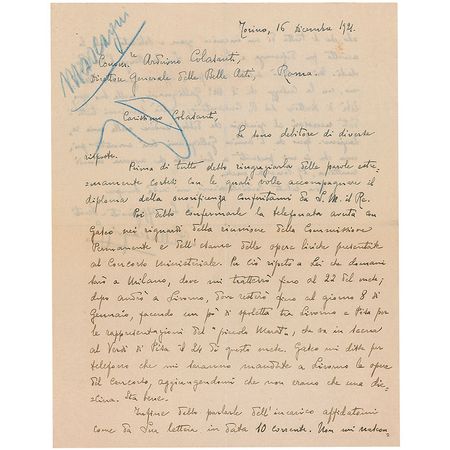 Mascagni
Torino, 16 Dicembre 1921.
Comm.re Arduino Colasanti,
Direttore Generale delle Belle Arti, Roma.
Carissimo Colasanti,
Le sono debitore di diverse
risposte.
Prima di tutto debbo ringraziarla delle parole estre-
mamente cortesi con le quali volle accompagnare il
diploma della onorificenza conferitami da S. M. il Re.
Poi debbo confermarle la telefonata avuta con
Gasco nei riguardi della riunione della Commissione
Permanente e dell'esame delle opere liriche presentate
al Concorso Ministeriale. Perciò ripeto a Lei che domani
sarò a Milano, dove mi tratterrò fino al 22 del mese;
dopo andrò a Livorno, dove resterò fino al giorno 8 di
Gennaio, facendo un pò di spoletta tra Livorno e Pisa per
le rappresentazioni del "piccolo Marat", che va in scena
al Verdi di Pisa il 24 di questo mese. Gasco mi disse per
telefono che mi saranno mandate a Livorno le opere
del Concorso, aggiungendomi che non erano che una die-
cina. Sta bene.
Infine debbo parlarle dell'incarico affidatomi
come da Sua lettera in data 10 corrente. Non mi nascon